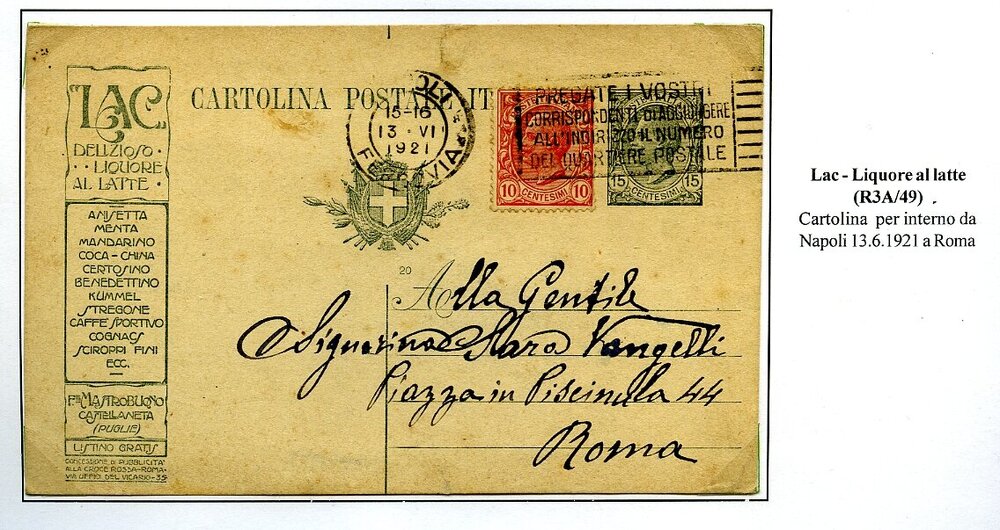 LAC.
DELIZIOSO
LIQUORE
AL LATTE
ANISETTA
MENTA
MANDARINO
COCA-CHINA
CERTOSINO
BENEDETTINO
KÜMMEL
STREGONE
CAFFÈ SPORTIVO
COGNACS
SCIROPPI FINI
ECC.
F.lli MASTROBUONO
CASTELLANETA
(PUGLIE)
LISTINO GRATIS
CONCESSIONE DI PUBBLICITA'
ALLA CROCE ROSSA-ROMA-
VIA UFFICI DEL VICARIO-35
CARTOLINA POSTALE IT
15-16
13·VI
1921
FERROVIA
PREGATE I VOSTRI
CORRISPONDENTI DI AGGIUNGERE
ALL'INDIRIZZO IL NUMERO
DEL QUARTIERE POSTALE
10 10
CENTESIMI
15 15
CENTESIMI
20
Alla Gentile
Signorina Sara Vangelli
Piazza in Piscinula 44
Roma
Lac - Liquore al latte
(R3A/49) .
Cartolina per interno da
Napoli 13.6.1921 a Roma